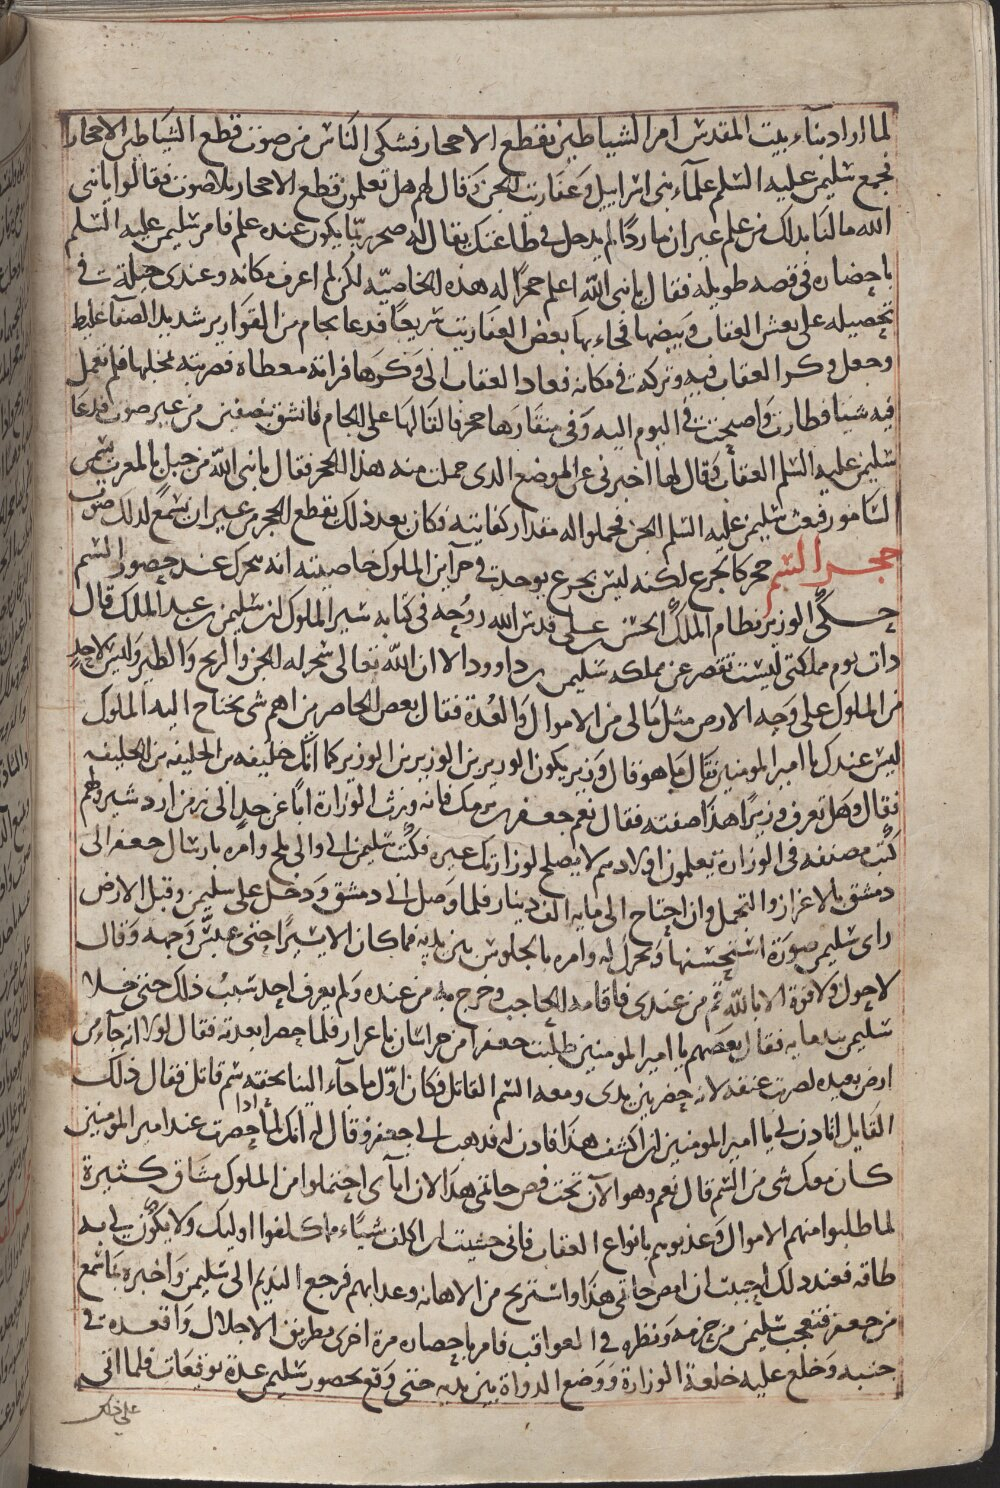 لما اراد بناء بيت المقدس امر الشياطين بقطع الاحجار فشكى الناس من صوت قطع الشياطين الاحجار
فجمع سليمن عليه السلم علماء بنى اسراييل وعفاريت الجن وقال لهم هل تعلمون قطع الاحجار بلا صوت فقالوا يا نبى
الله ما لنا بذلك من علم غير ان ماردا لم يدخل فى طاعتك يقال له صخر ربما يكون عنده علم فامر سليمن عليه السلم
باحضاره فى قصه طويله فقال يا نبى الله اعلم حجرا له هذه الخاصيه لكن لم اعرف مكانه وعندى حيلة فى
تحصيله على بعش العقاب وبيضها فجاء بها بعض العفاريت سريعا فدعا بجام من القوارير شديد الصفا غليظ
وجعل وكر العقاب فيه وتركه فى مكانه فعاد العقاب الى وكرها فراته مغطاه فضربته بمخلبها فلم تعمل
فيه شيا فطارت واصبحت فى اليوم اليه وفى منقارها حجر فالقالها على الجام فانشق نصفين من غير صوت فدعا
سليمن عليه السلم العقاب وقال لها اخبرنى عن الموضع الذى حملت منه هذا الحجر فقال يا نبى الله من جبل بالمغرب يسمى
السامور فبعث سليمن عليه السلم الجن فحملوا له مقدار كفايته فكان بعد ذلك يقطع الحجر من غير ان يسمع لذلك صوت
حجر السم حجر كالجزع لكنه ليس بجزع يوجد فى خزاين الملوك خاصيته انه يتحرك عند حضور السم
حكى الوزير نظام الملك الحسن بن على قدس الله روحه فى كتابه سير الملوك ان سليمن بن عبد الملك قال
ذات يوم مملكتى ليست تقصر عن مملكه سليمن بن داوود الا ان الله تعالى سخر له الجن والريح والطير وليس لاحد
من الملوك على وجه الارض مثل مالى من الاموال والعدة فقال بعض الحاضرين اهم شى يحتاج اليه الملوك
ليس عندك يا امير المومنين قال ما هو قال وزير يكون الوزير بن الوزير بن الوزير كما انك خليفه بن الخليفه بن الخليفه
فقال وهل تعرف وزيرا هذا صفته فقال نعم جعفر بن برمك فانه ورث الوزارة ابا عن جد الى زمن اردشير ولهم
كتب مصنفه فى الوزارة يعلمون اولادهم لا يصلح لوزارتك غيره فكتب سليمن الى والى بلخ وامره بارسال جعفر الى
دمشق بالاعزاز والتجمل وان احتاج الى مايه الف دينار فلما وصل الى دمشق ودخل على سليمن وقبل الارض
راى سليمن صورة استحسنها وتحرك له وامره بالجلوس بين يديه فما كان الا يسيرا حتى عبس وجهه وقال
لا حول ولا قوة الا بالله قم من عندى فاقامه الحاجب وخرج به من عنده ولم يعرف احد سبب ذلك حتى خلا
سليمن بندمايه فقال بعضهم يا امير المومنين طلبت جعفرا من خراسان باعزاز فلما حضر ابعدته فقال لولا انه جاء من
ارض بعيده لضربت عنقه لانه حضر بين يدى ومعه السم القاتل فكان اول ما جاء الينا بحفته سم قاتل فقال ذلك
القايل اتاذن لى يا امير المومنين ان اكشف هذا فاذن له فذهب الى جعفر وقال له انك لما اذا حضرت عند امير المومنين
كان معك شى من السم قال نعم وهو الآن تحت فص خاتمى هذا لان ابآى احتملوا من الملوك مشاق كثيرة
لما طلبوا منهم الاموال وعذبوهم بانواع العقاب فانى خشيت ان اكلف شيئا مما كلفوا اوليك ولا يكون لى به
طاقه فعند ذلك احببت ان امص خاتمى هذا واستريح من الاهانه وعذابهم فرجع النديم الى سليمن واخبره بما سمع
من جعفر فتعجب سليمن من حزمه ونظره فى العواقب فامر باحضاره مرة اخرى بطريق الاجلال واقعده فى
جنبه وخلع عليه خلعة الوزارة ووضع الدواة بين يديه حتى وقع بحضور سليمن عدة توقيعات فلما اتى
على ذلك